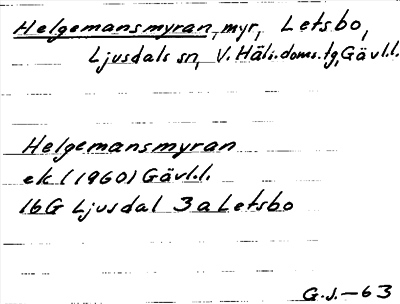 Helgemansmyran, myr, Letsbo,
Ljusdals sn, V. Häls. doms. tg, Gävl.l.
Helgemansmyran
ek (1960) Gävl.l.
16G Ljusdal 3a Letsbo
G.J.-63